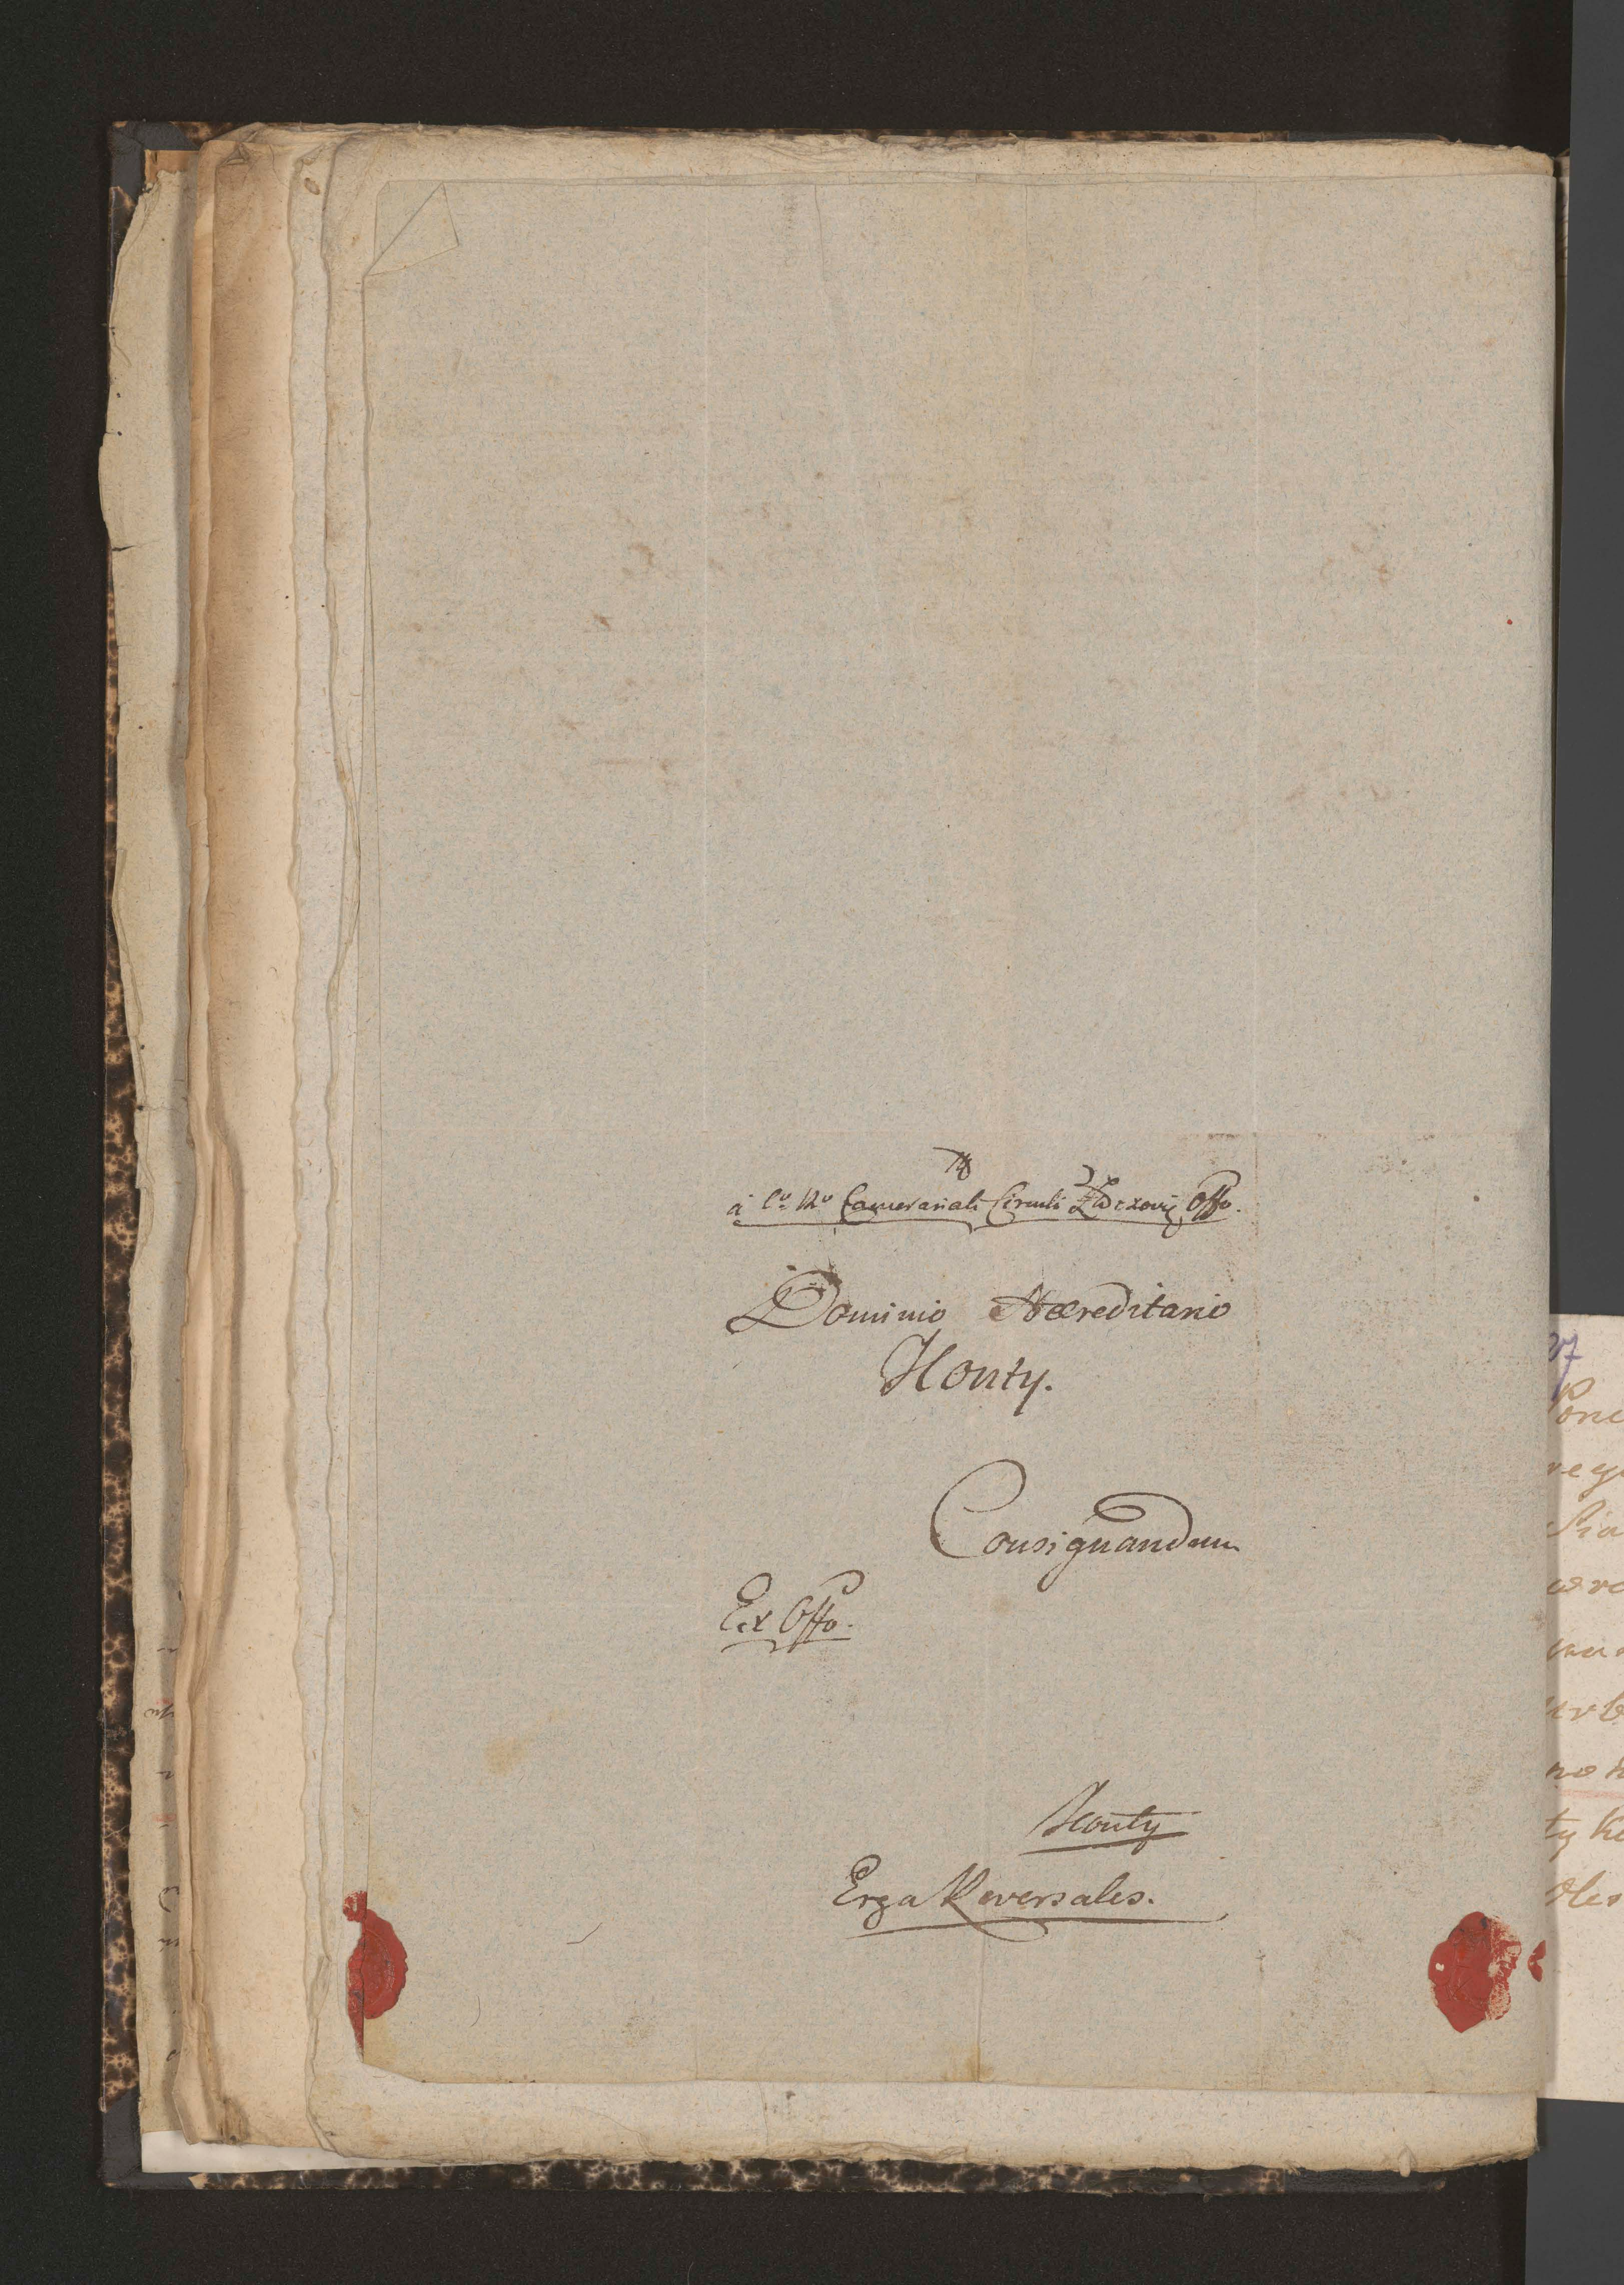 à C. R. Camerariali Circuli Złoczovię Offo.
Dominio Haereditario
Honty.
Consignandum
Ex Offo.
Honty
Erga Reversales.